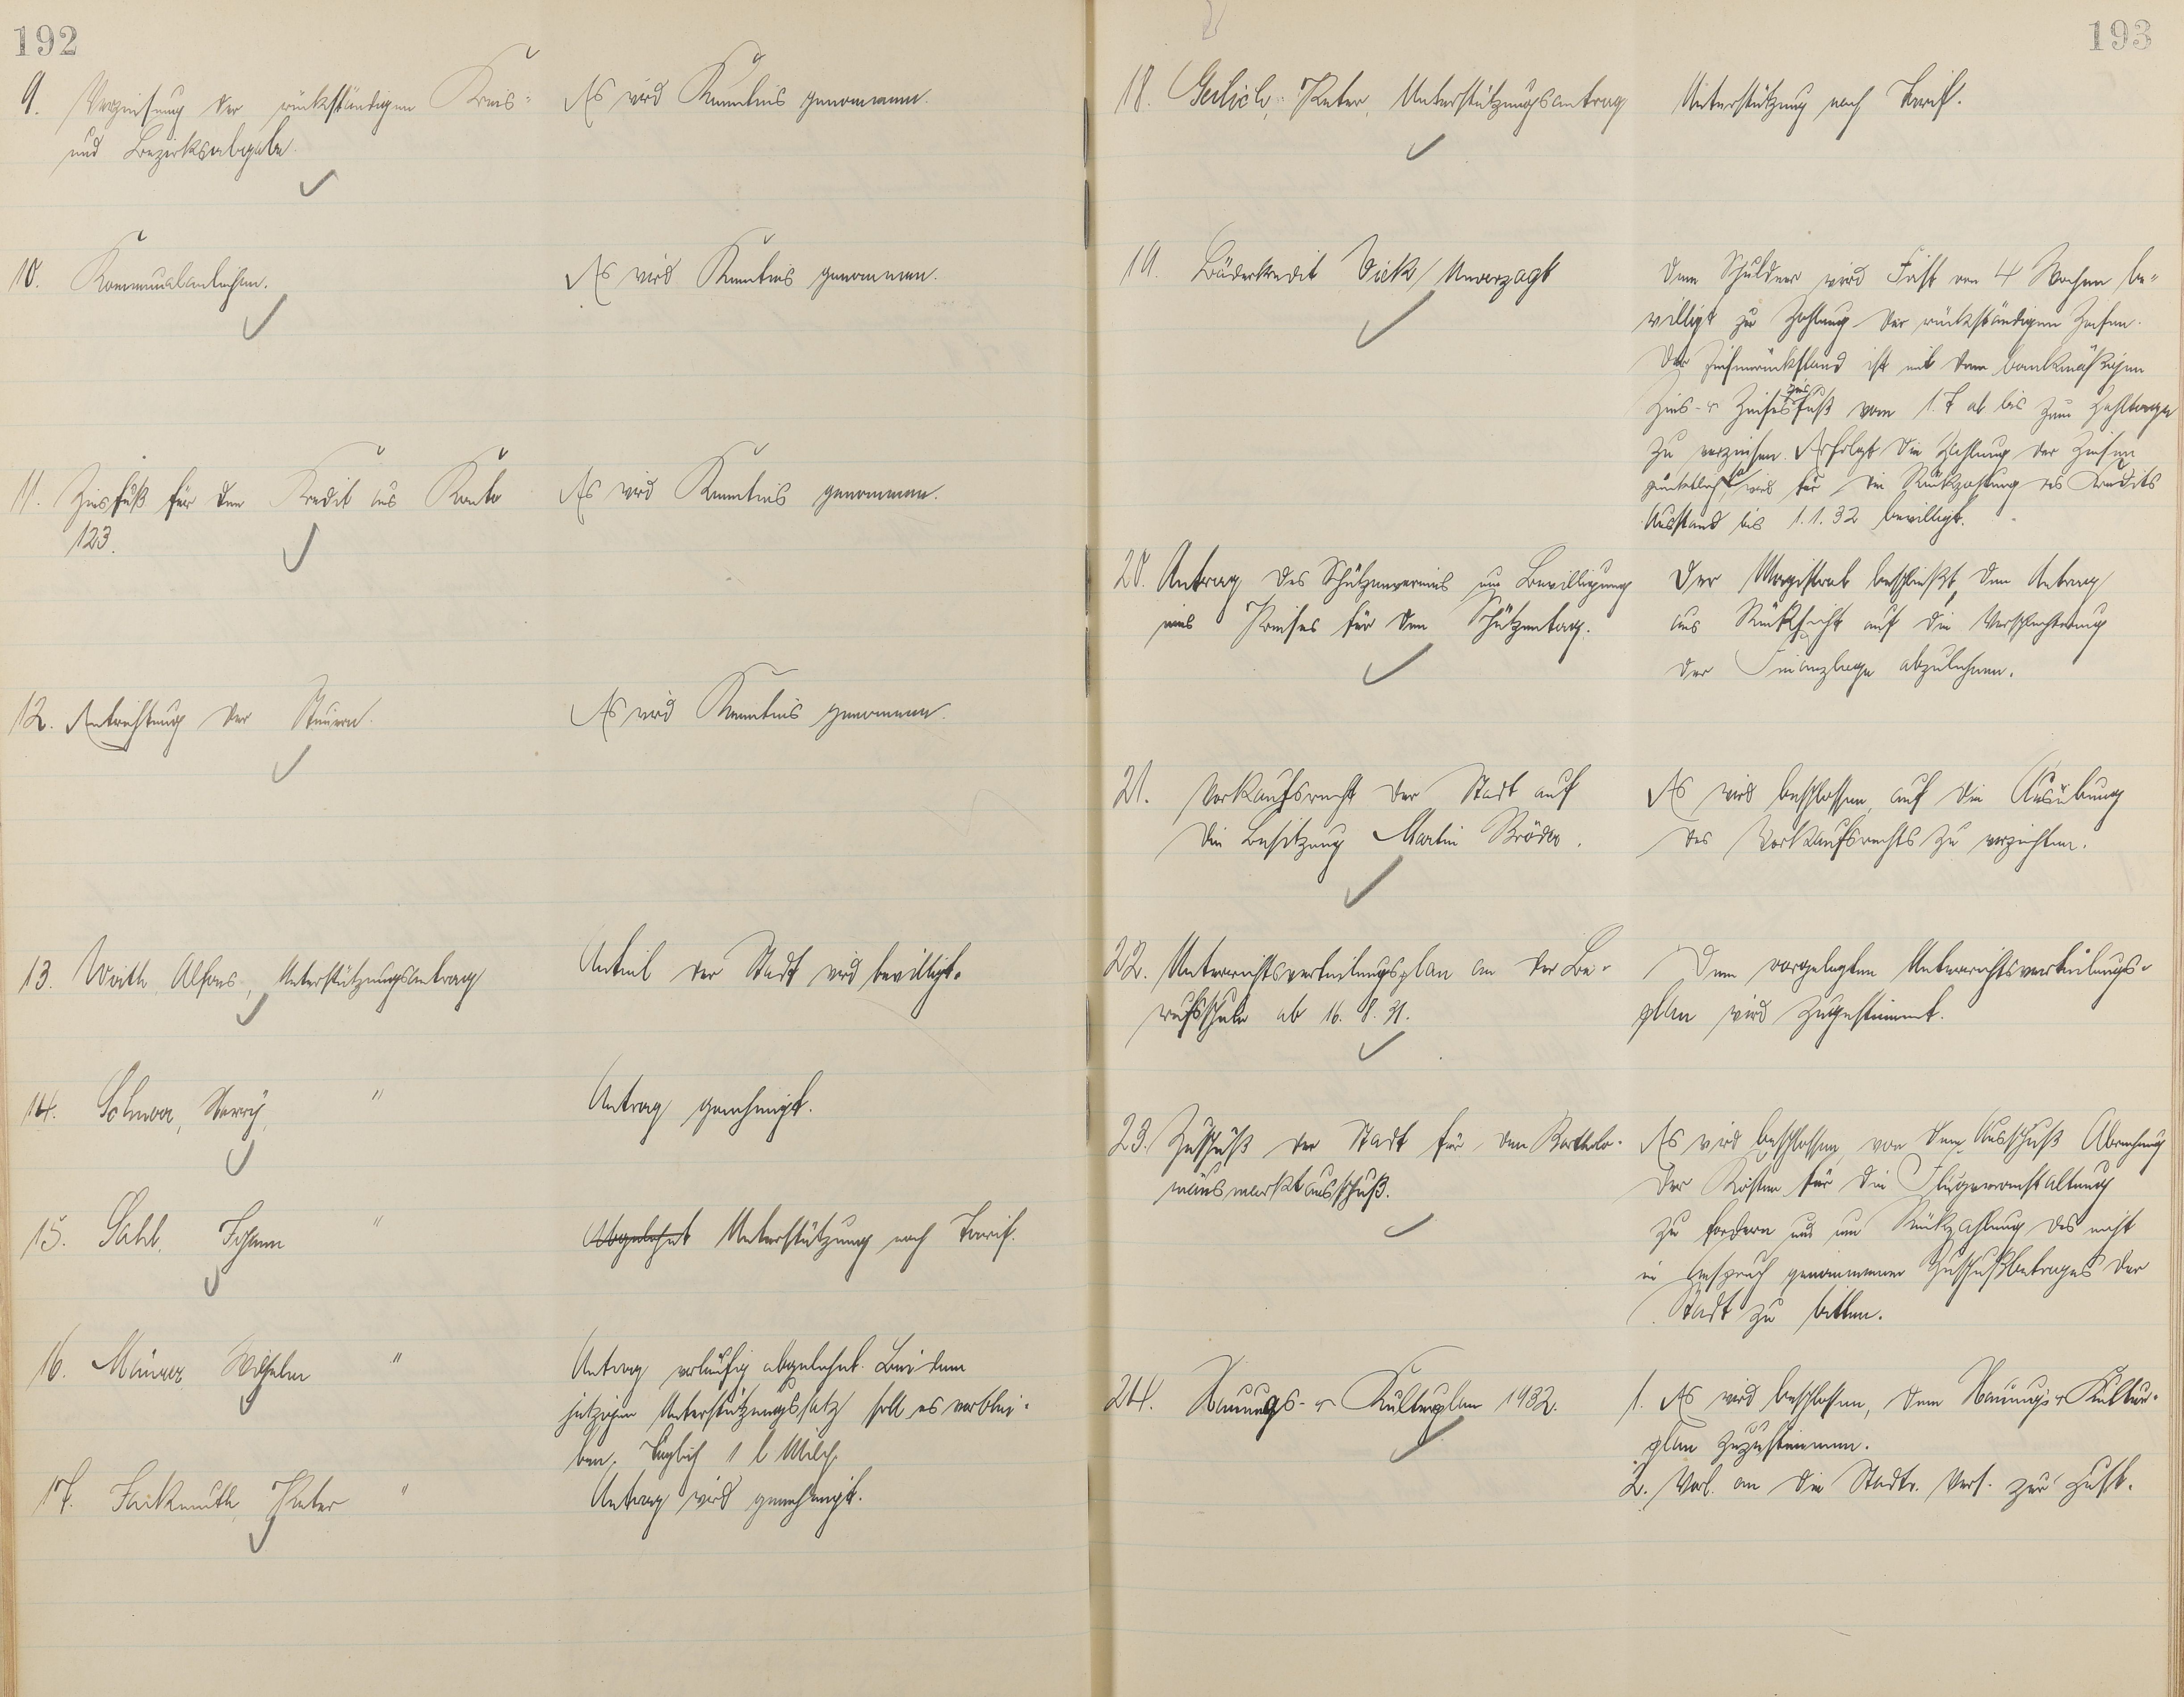 192
9. Verzinsung der rückständigen Kreis-
und Bezirksabgabe.
Es wird Kenntnis genommen.
10. Kommunalanleihen.
Es wird Kenntnis genommen.
11. Zinsfuß für den Kredit aus Konto
123.
Es wird Kenntnis genommen.
12. Entrichtung der Steuern.
Es wird Kenntnis genommen.
13. Woith, Alfons, Unterstützungsantrag
Anteil der Stadt wird bewilligt.
14. Schnorr, "
Antrag genehmigt.
15. Sahl, Johann "
Abgelehnt Unterstützung nach Tarif.
16. Maurer Wilhelm "
Antrag vorläufig abgelehnt. Bei dem
jetzigen Unterstützungssatz soll es verblei-
ben. Täglich 1 l Milch.
17. Peter "
Antrag wird genehmigt.
193
18. Gerlich, Peter, Unterstützungsantrag
Unterstützung nach Tarif.
19. Bäderkredit Dick/Unverzagt
Dem Schuldner wird Frist von 4 Wochen be-
willigt zur Zahlung der rückständigen Zinsen.
Der Zinsenrückstand ist mit dem bankmäßigen
Zins- u Zinseszinsfuß vom 1.7 ab bis zum Zahltage
zu verzinsen. Erfolgt die Zahlung der Zinsen
pünktlich, so wird für die Rückzahlung des Kredits
Ausstand bis 1.1.32 bewilligt.
20. Antrag des Schützenvereins um Bewilligung
eines Preises für den Schützentag.
Der Magistrat beschließt, den Antrag
aus Rücksicht auf die Verschlechterung
der Finanzlage abzulehnen.
21. Vorkaufsrecht der Stadt auf
die Besitzung Martin Bröder.
Es wird beschlossen, auf die Ausübung
des Vorkaufsrechts zu verzichten.
22. Unterrichtsverteilungsplan an der Be-
rufsschule ab 16. 8. 31.
Dem vorgelegten Unterrichtsverteilungs-
plan wird zugestimmt.
23. Zuschuß der Stadt für den Bartholo-
mäusmarktausschuß.
Es wird beschlossen, von dem Ausschuß Abrechnung
der Kosten für die Flugveranstaltung
zu fordern und um Rückzahlung des nicht
in Anspruch genommenen Zuschußbetrages der
Stadt zu bitten.
24. Hauungs- u Kulturplan 1932.
1. Es wird beschlossen, dem Hauungs u Kultur-
plan zuzustimmen.
2. Vorl. an die Stadtv. Vers. zur Zust.